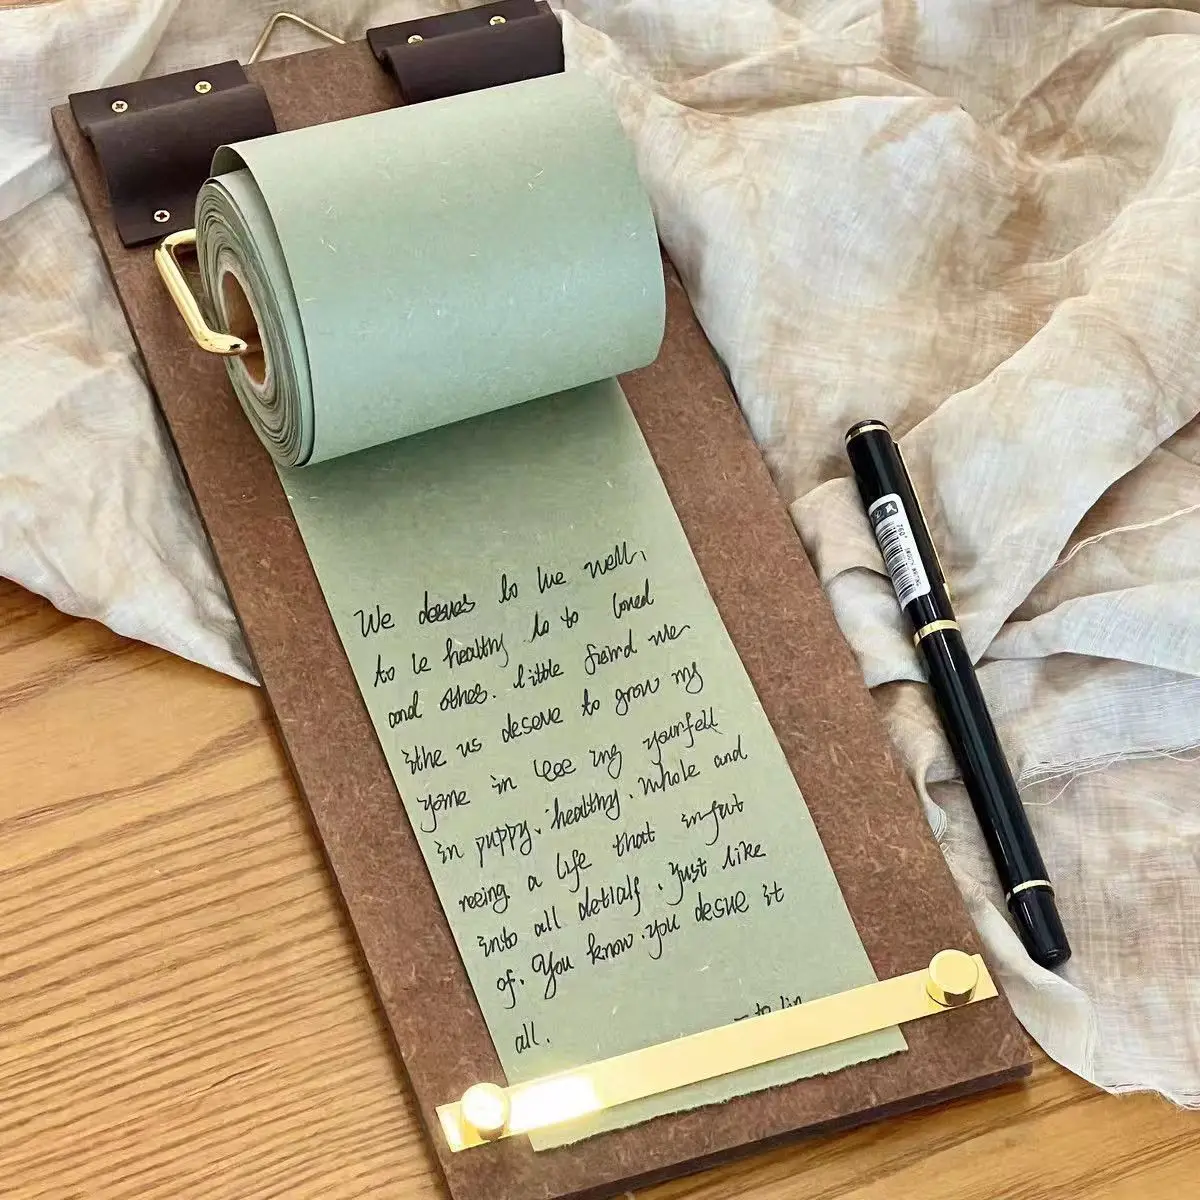 We deserves to live well,
to be healthy to to loved
and othes. little friend we
ithe us deserve to grow my
yome in ing yourfell
in puppy. healthy. whole and
reeing a life that
into all detials. just like
of. You know. you desve it
all.
— to lin